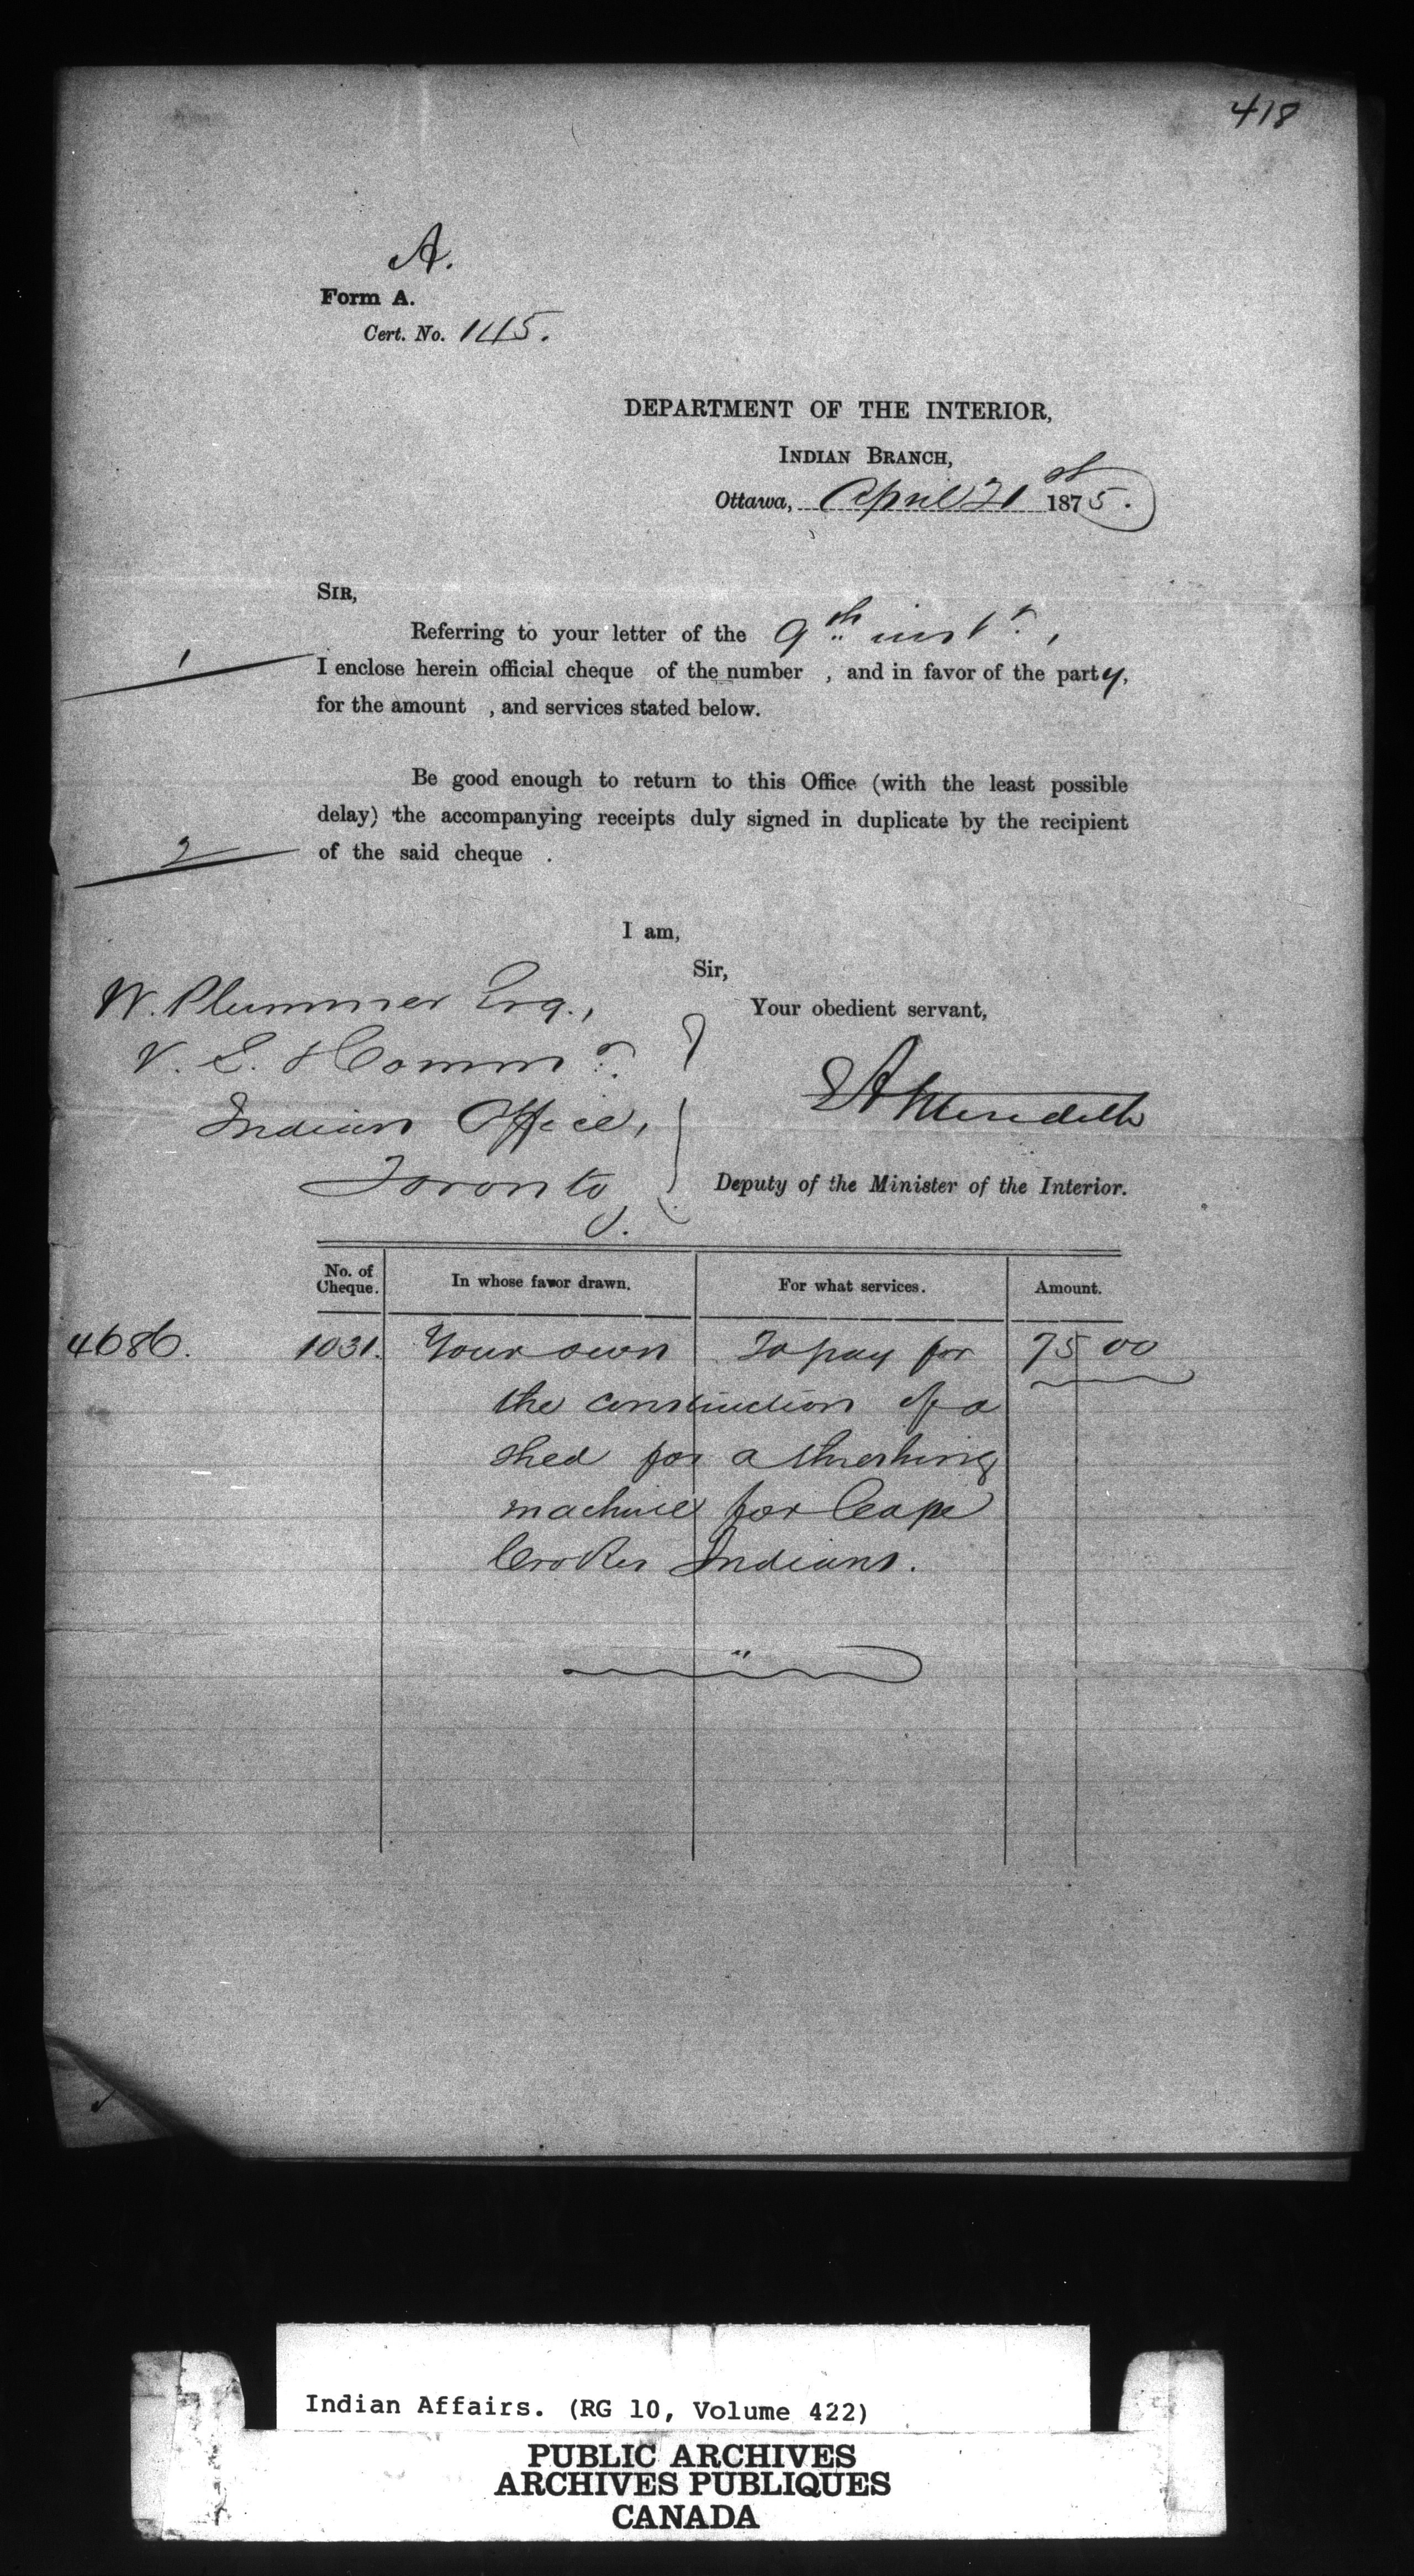 418
A.
Form A.
Cert. No. 145.
DEPARTMENT OF THE INTERIOR,
INDIAN BRANCH,
Ottawa, April 21st 1875.
SIR,
Referring to your letter of the 9th inst.,
1
I enclose herein official cheque of the number , and in favor of the party,
for the amount , and services stated below.
Be good enough to return to this Office (with the least possible
delay) the accompanying receipts duly signed in duplicate by the recipient
2
of the said cheque .
I am,
Sir,
Your obedient servant,
W. Plummer Esq.,
V. S. & Commr.
Indian Office,
Toronto
EA Meredith
Deputy of the Minister of the Interior.
No. of Cheque. In whose favor drawn. For what services. Amount.
4686. 1031. Your own To pay for 75 00
the construction of a
shed for a threshing
machine for Cape
Croker Indians.
Indian Affairs. (RG 10, Volume 422)
PUBLIC ARCHIVES
ARCHIVES PUBLIQUES
CANADA